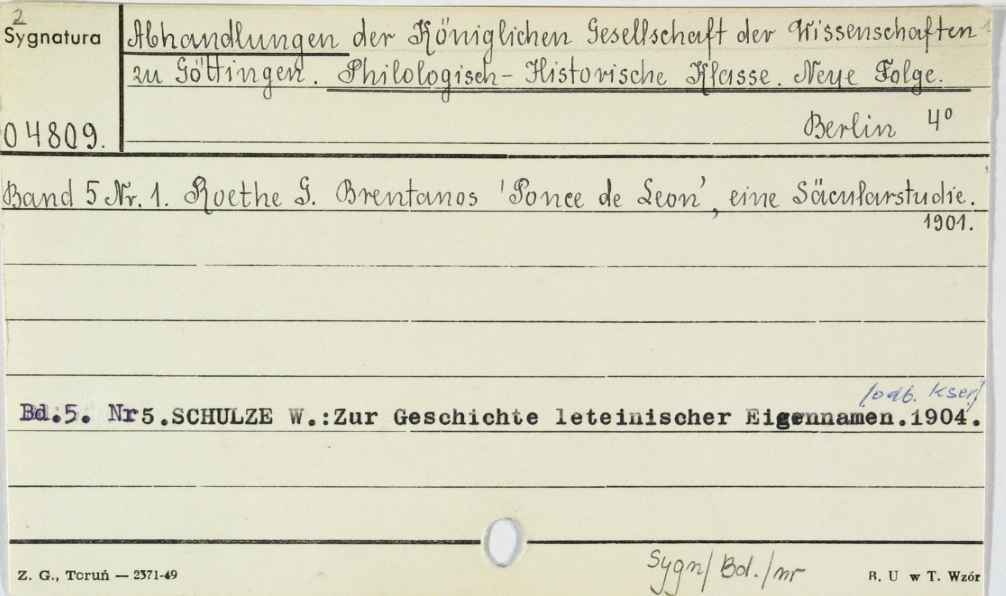 2
Sygnatura
Abhandlungen der Königlichen Gesellschaft der Wissenschaften
zu Göttingen. Philologisch-Historische Klasse. Neue Folge.
04809.
Berlin 4°
Band 5 Nr. 1. Roethe G. Brentanos 'Ponce de Leon', eine Säcularstudie.
1901.
/odb. kser/
Bd.5. Nr5.SCHULZE W.:Zur Geschichte leteinischer Eigennamen.1904.
Sygn/Bd./nr
Z. G., Toruń — 2371-49
B. U w T. Wzór